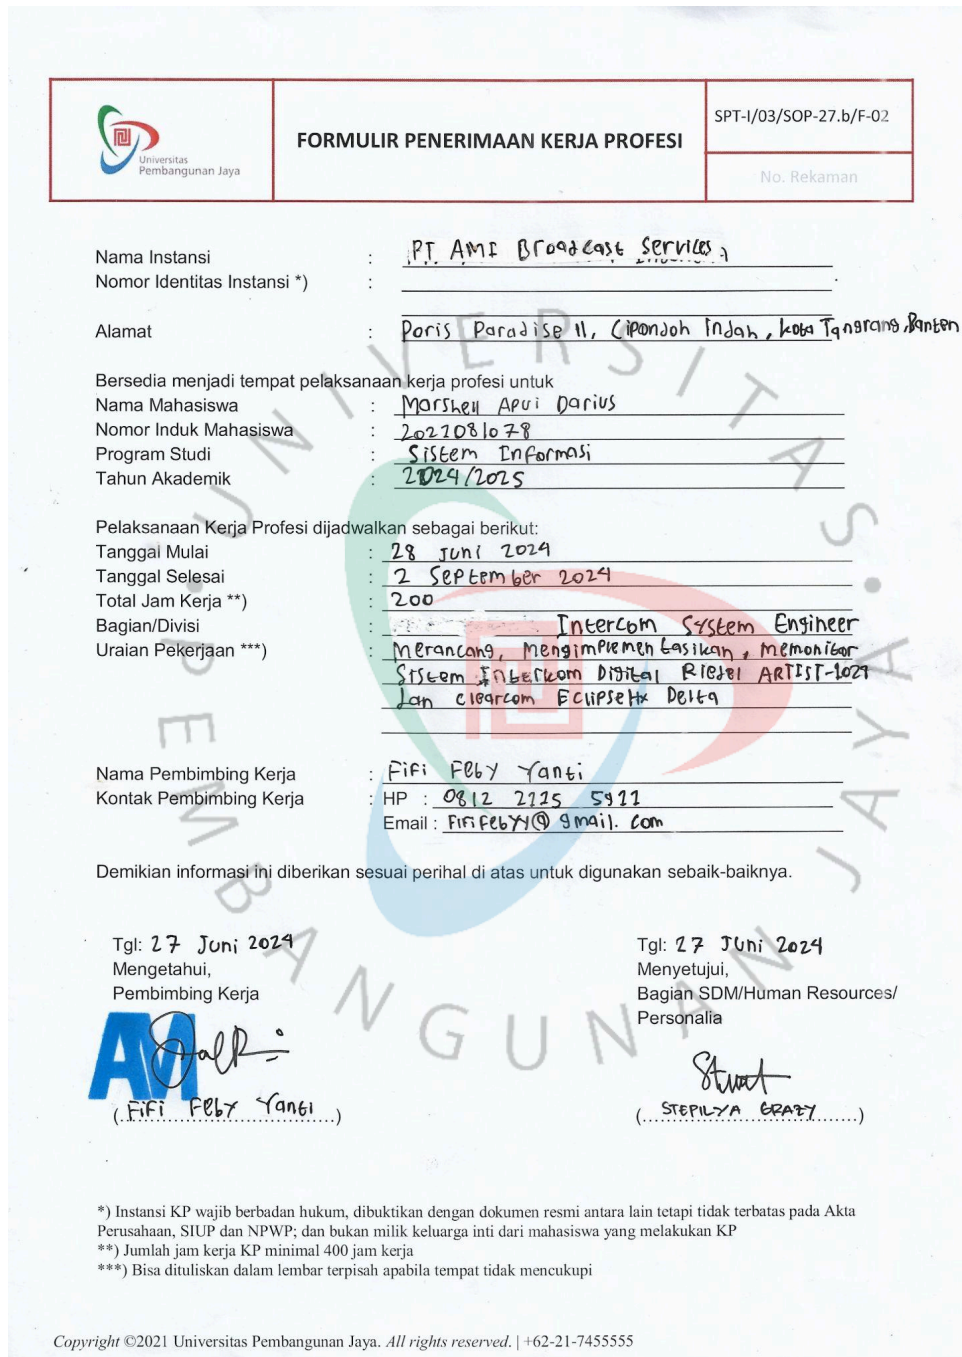 Universitas
Pembangunan Jaya
FORMULIR PENERIMAAN KERJA PROFESI
SPT-I/03/SOP-27.b/F-02
No. Rekaman
Nama Instansi : PT AMI Broadcast Services
Nomor Identitas Instansi *) :
Alamat : Poris Paradise 11, Cipondoh Indah, Kota Tangrang, Banten
Bersedia menjadi tempat pelaksanaan kerja profesi untuk
Nama Mahasiswa : Marshell Apui Darius
Nomor Induk Mahasiswa : 2022081078
Program Studi : Sistem Informasi
Tahun Akademik : 2024/2025
Pelaksanaan Kerja Profesi dijadwalkan sebagai berikut:
Tanggal Mulai : 28 Juni 2024
Tanggal Selesai : 2 September 2024
Total Jam Kerja **) : 200
Bagian/Divisi : Intercom System Engineer
Uraian Pekerjaan ***) : Merancang, Mengimplementasikan, memonitor
Sistem Interkom Digital Riedel ARTIST-1024
dan Clearcom EclipseHx Delta
Nama Pembimbing Kerja : Fifi Feby Yanti
Kontak Pembimbing Kerja : HP : 0812 2225 5922
Email : FifiFebyy1@gmail.com
Demikian informasi ini diberikan sesuai perihal di atas untuk digunakan sebaik-baiknya.
Tgl: 27 Juni 2024
Mengetahui,
Pembimbing Kerja
AM
(Fifi Feby Yanti)
Tgl: 27 Juni 2024
Menyetujui,
Bagian SDM/Human Resources/
Personalia
(STEPILYA GRAZY)
*) Instansi KP wajib berbadan hukum, dibuktikan dengan dokumen resmi antara lain tetapi tidak terbatas pada Akta
Perusahaan, SIUP dan NPWP; dan bukan milik keluarga inti dari mahasiswa yang melakukan KP
**) Jumlah jam kerja KP minimal 400 jam kerja
***) Bisa dituliskan dalam lembar terpisah apabila tempat tidak mencukupi
Copyright ©2021 Universitas Pembangunan Jaya. All rights reserved. | +62-21-7455555
UNIVERSITAS PEMBANGUNAN JAYA